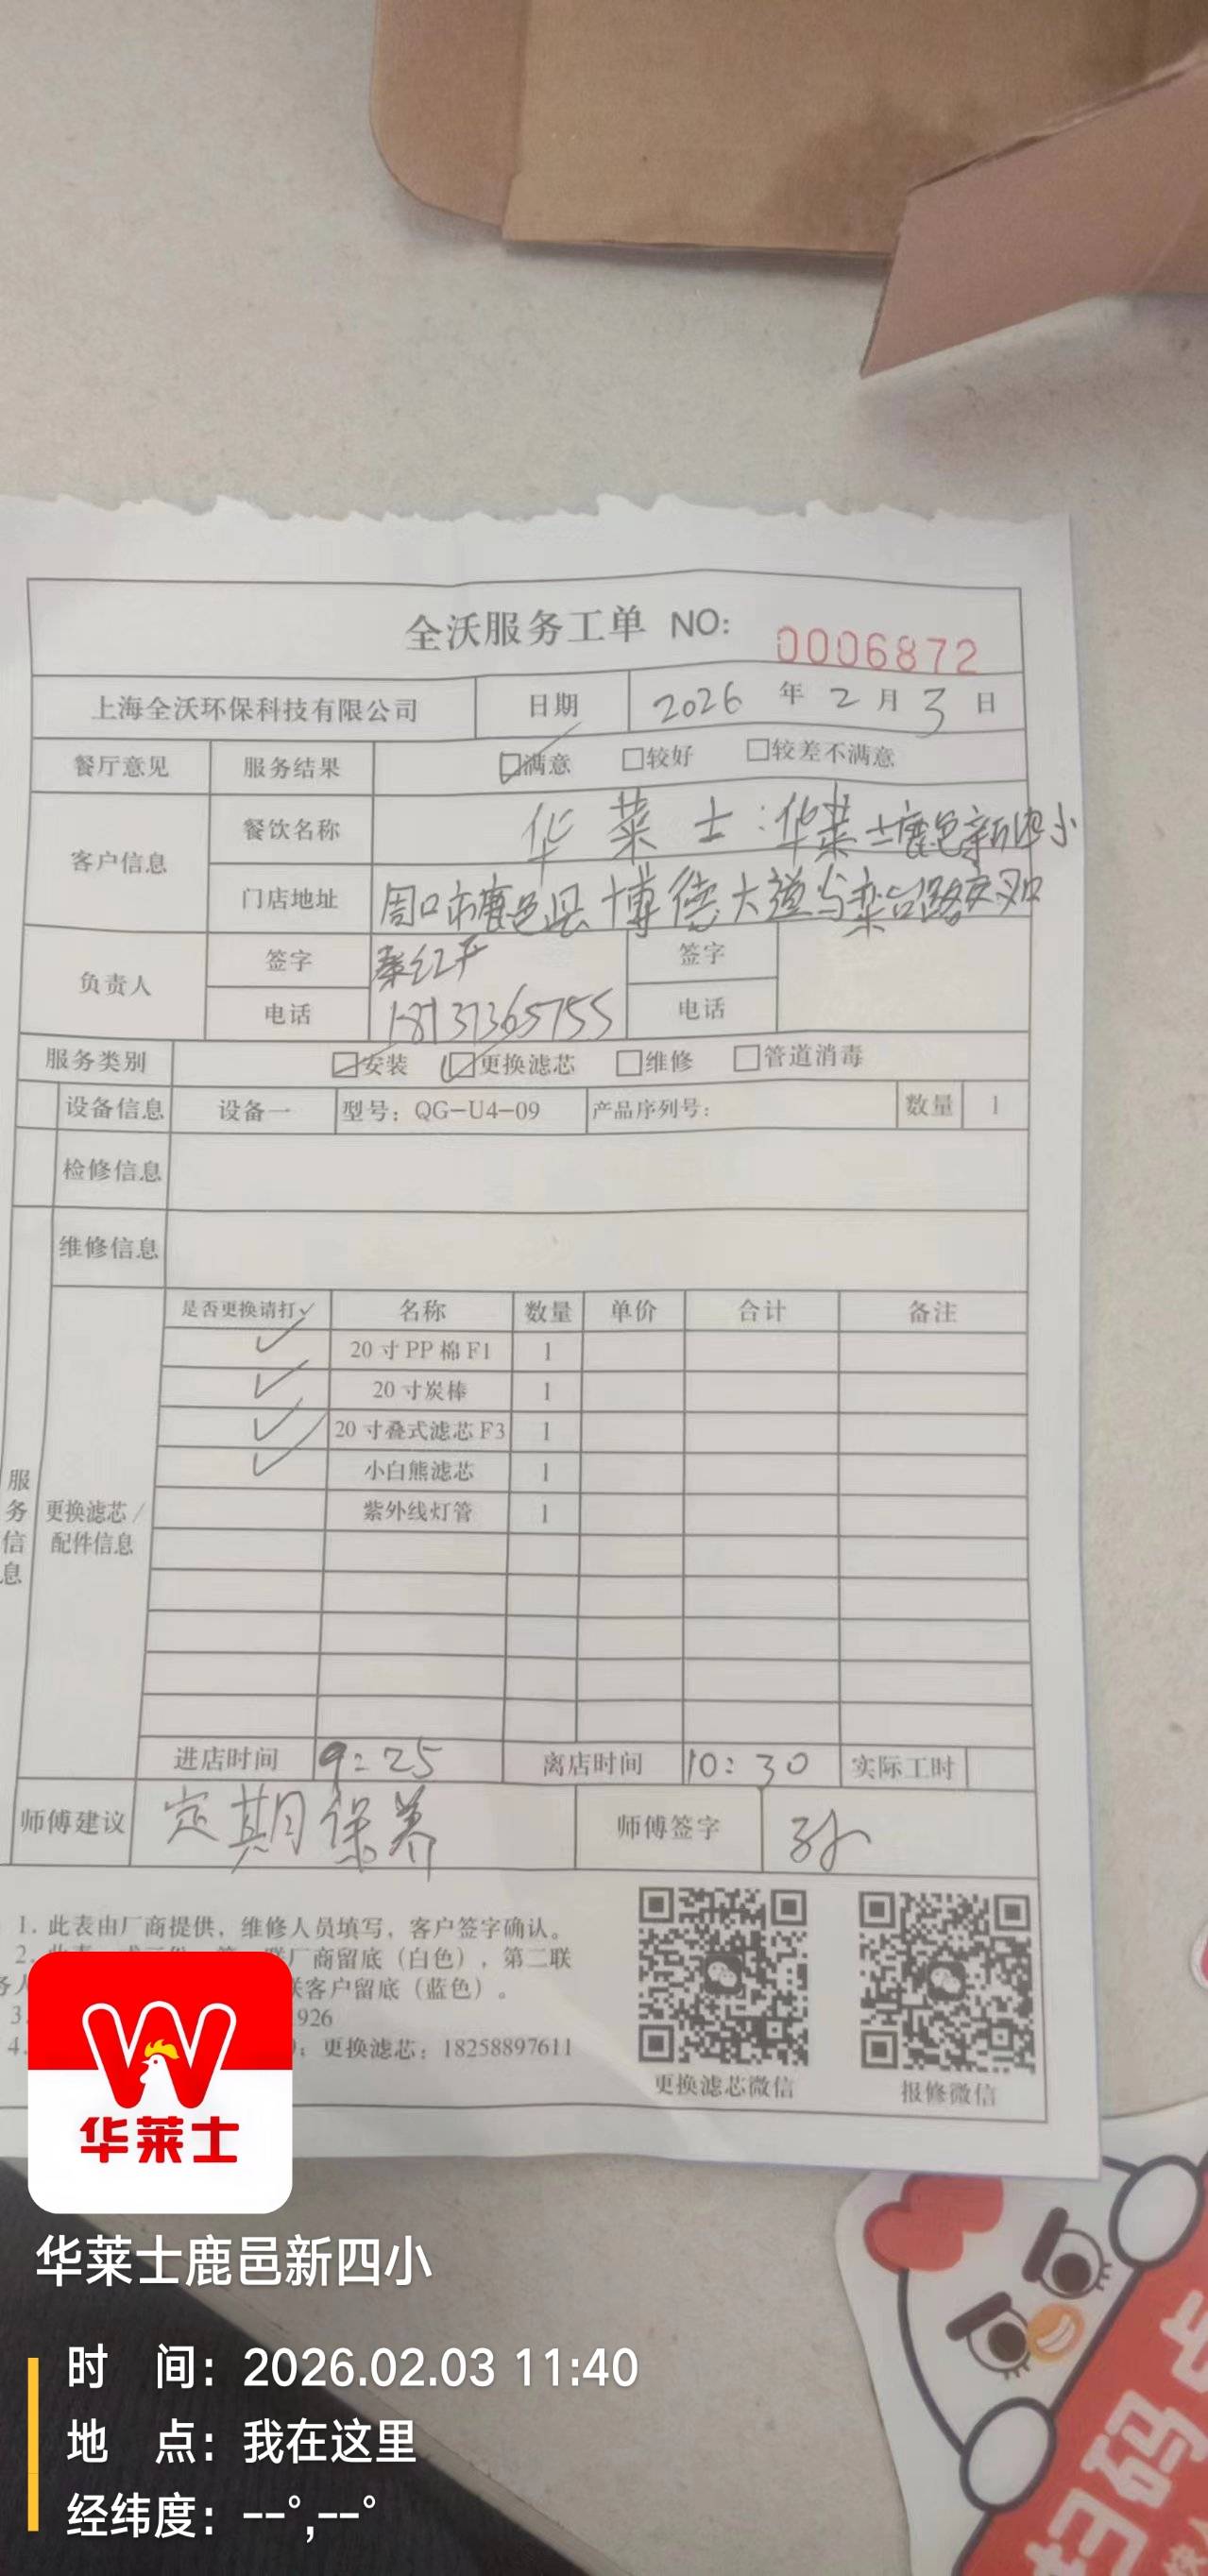 全沃服务工单 NO: 0006872
上海全沃环保科技有限公司 日期 2026 年 2 月 3 日
餐厅意见 服务结果 满意 较好 较差不满意
客户信息 餐饮名称 华莱士:华莱士鹿邑新四小
门店地址 周口市鹿邑县博德大道与栾台路交叉口
负责人 签字 秦红 签字
电话 18137365755 电话
服务类别 安装 更换滤芯 维修 管道消毒
设备信息 设备一 型号: QG-U4-09 产品序列号: 数量 1
检修信息
维修信息
服务信息
更换滤芯/
配件信息
是否更换请打✓ 名称 数量 单价 合计 备注
✓ 20寸PP棉F1 1
✓ 20寸炭棒 1
✓ 20寸叠式滤芯F3 1
✓ 小白熊滤芯 1
紫外线灯管 1
进店时间 9:25 离店时间 10:30 实际工时
师傅建议 定期保养 师傅签字 孙
1. 此表由厂商提供, 维修人员填写, 客户签字确认。
2. 联厂商留底（白色）, 第二联
联客户留底（蓝色）。
3. 926
4. 更换滤芯: 18258897611
更换滤芯微信 报修微信
华莱士
华莱士鹿邑新四小
时 间: 2026.02.03 11:40
地 点: 我在这里
经纬度: --°,--°
扫码点